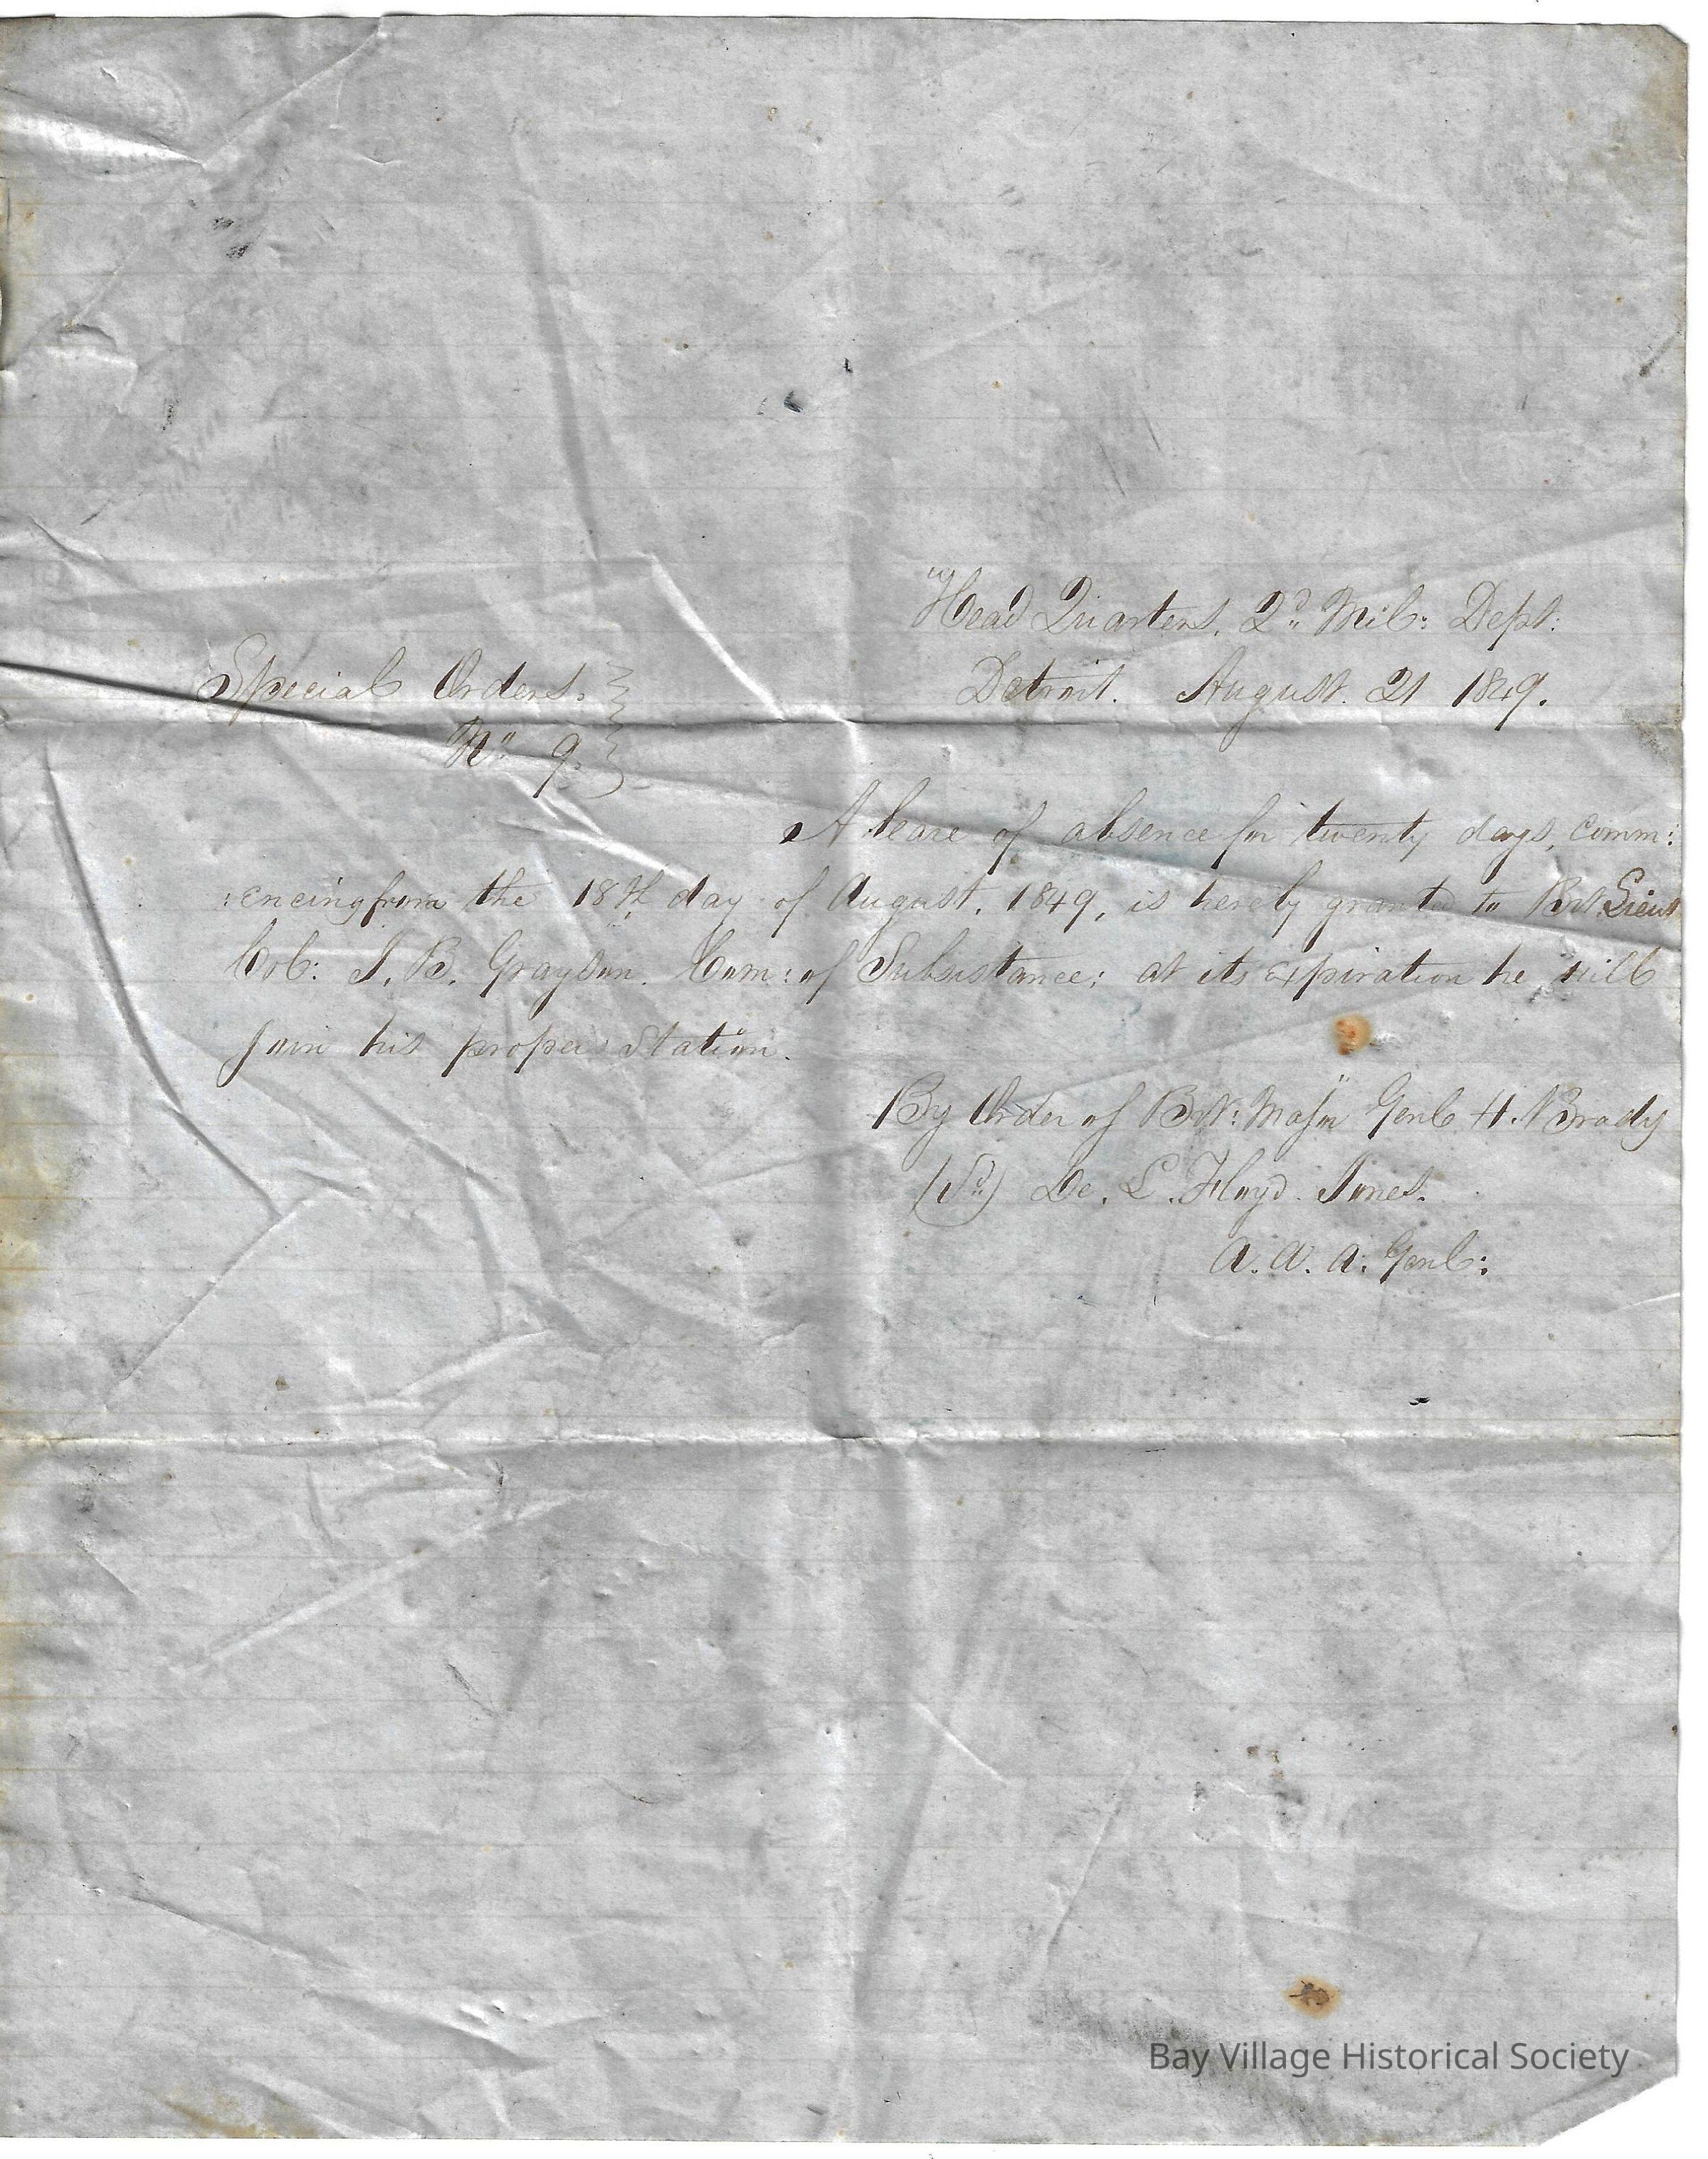 "Head Quarters, 2d Mil: Dept:
Detroit. August. 21 1849.
Special Orders.
No 9.
A leave of absence for twenty days, comm:
:encing from the 18th day of August, 1849, is hereby granted to Bvt. Lieut
Col: J. B. Grayson. Com: of Subsistance; at its expiration he will
join his proper Station.
By Order of Bvt: Major Genl H. Brady
(Sd) De. L. Floyd. Jones.
A. A. A. Genl:
Bay Village Historical Society